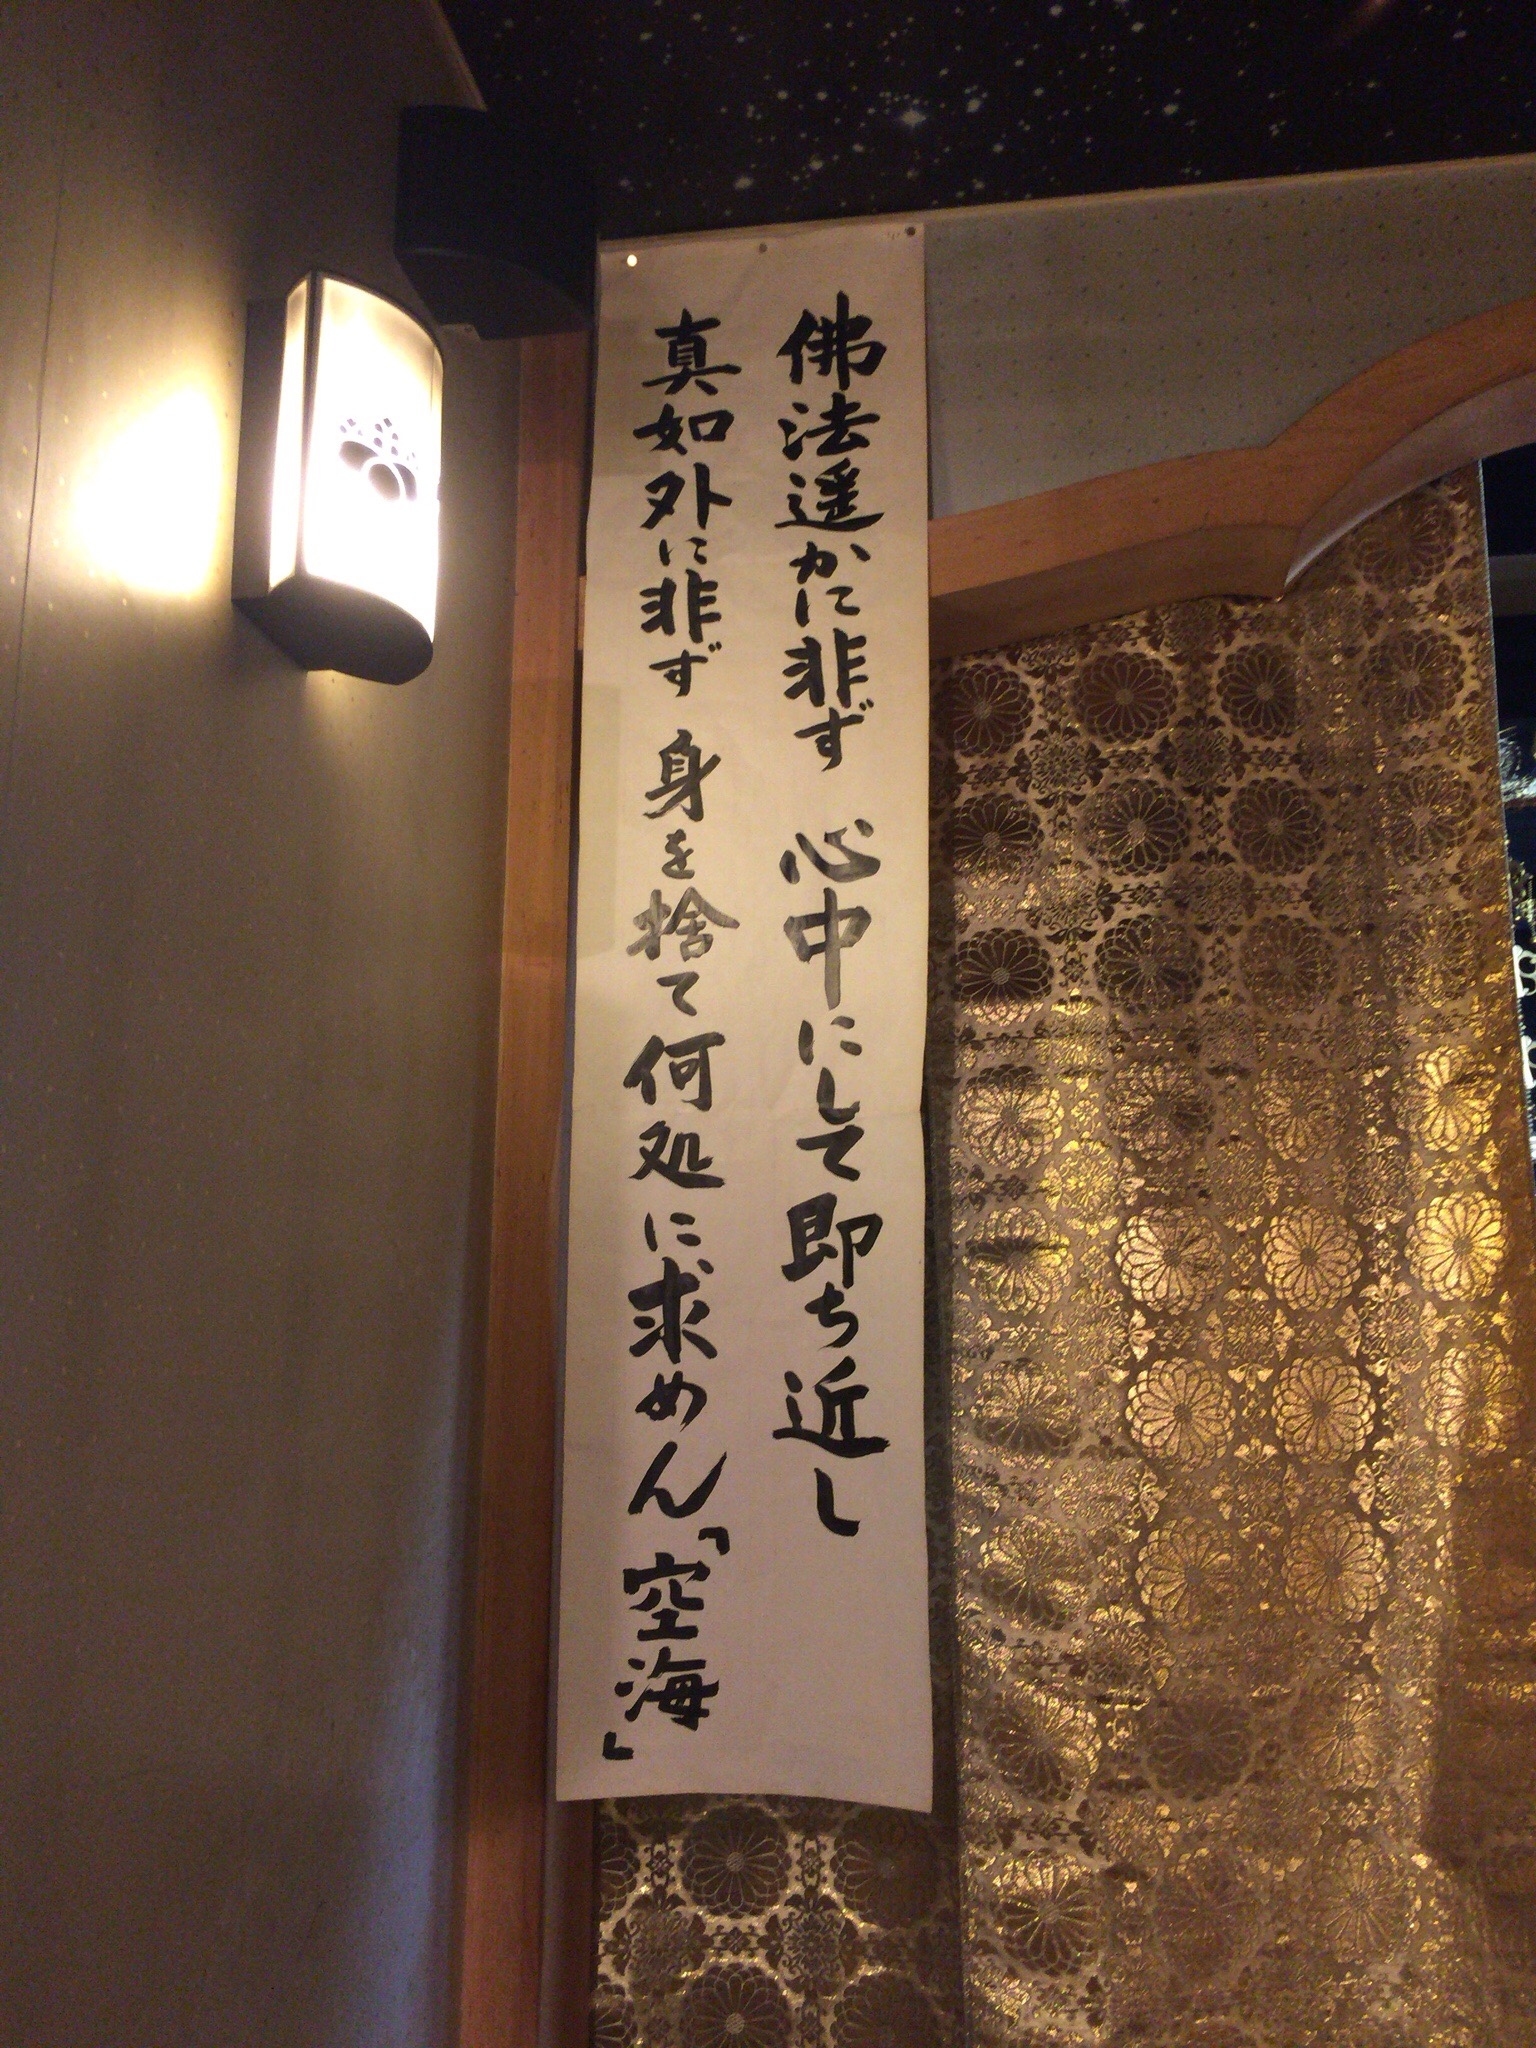 佛法遥かに非ず 心中にして即ち近し
真如外に非ず 身を捨て何処に求めん「空海」